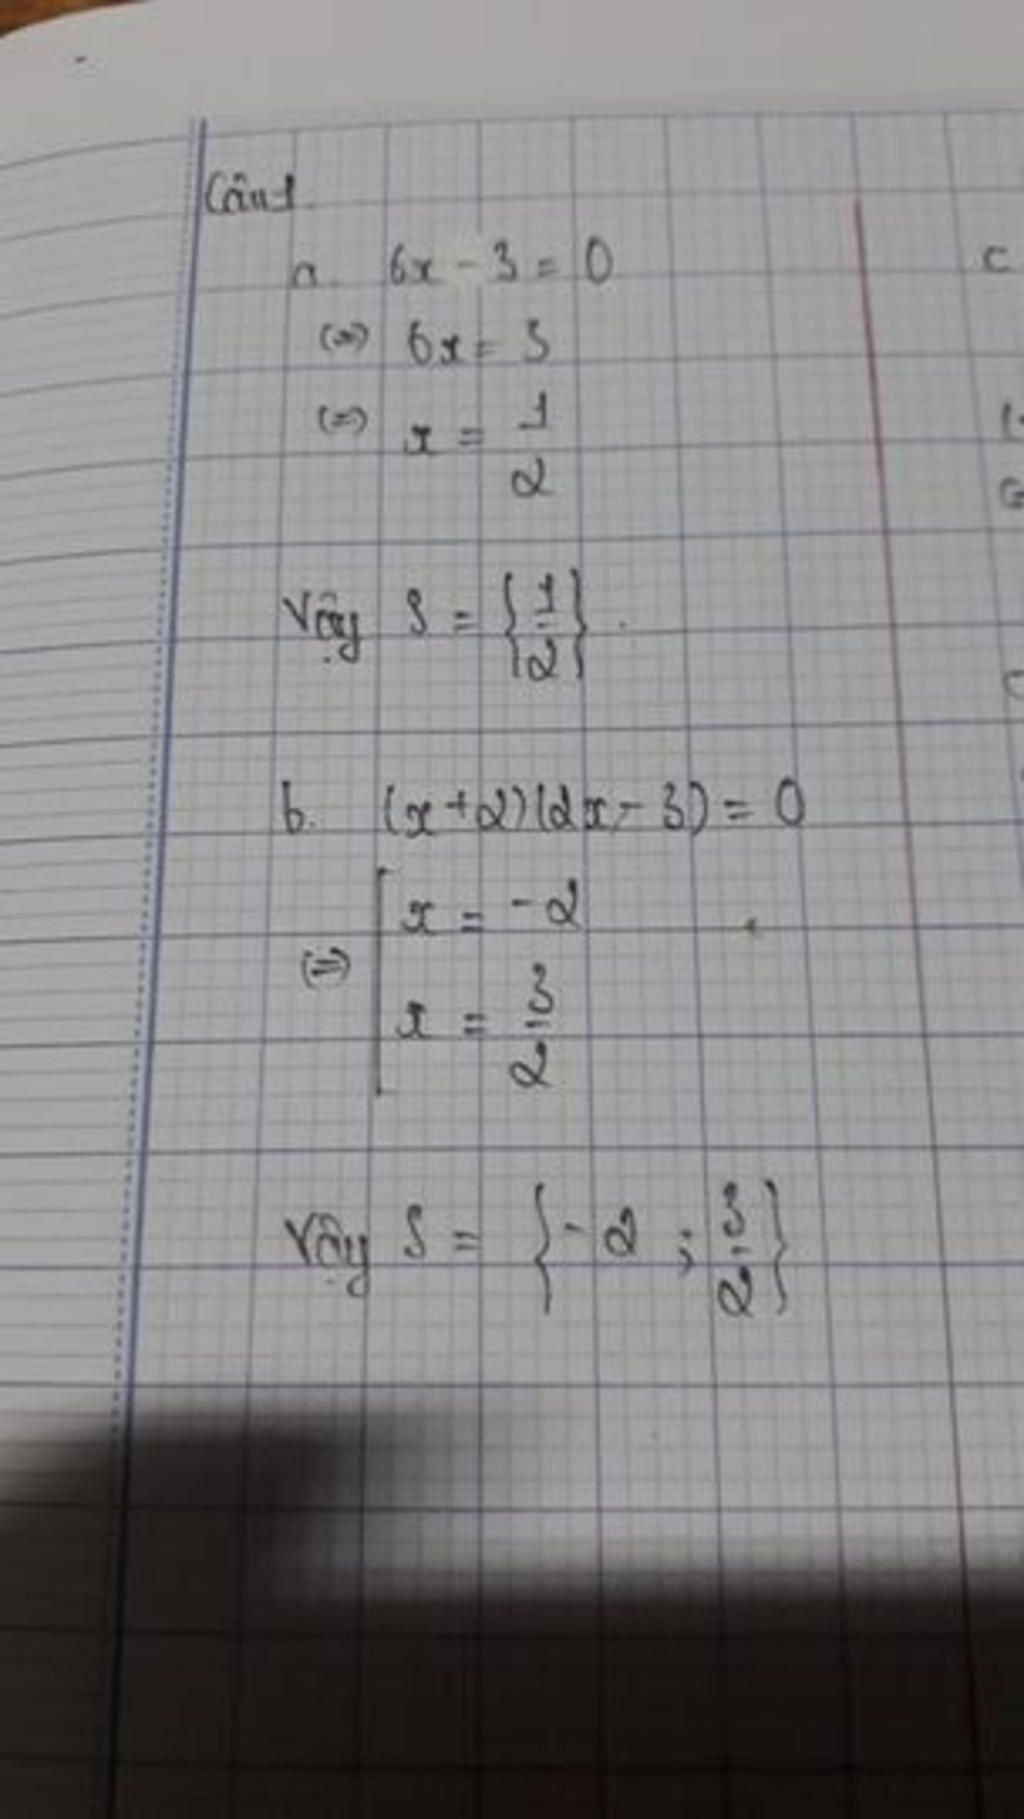 Câu 1.
a. 6x - 3 = 0
(=) 6x = 3
(=) x = 1/2
Vậy S = {1/2}.
b. (x+2)(2x-3) = 0
(=) [ x = -2
x = 3/2
Vậy S = {-2 ; 3/2}
c